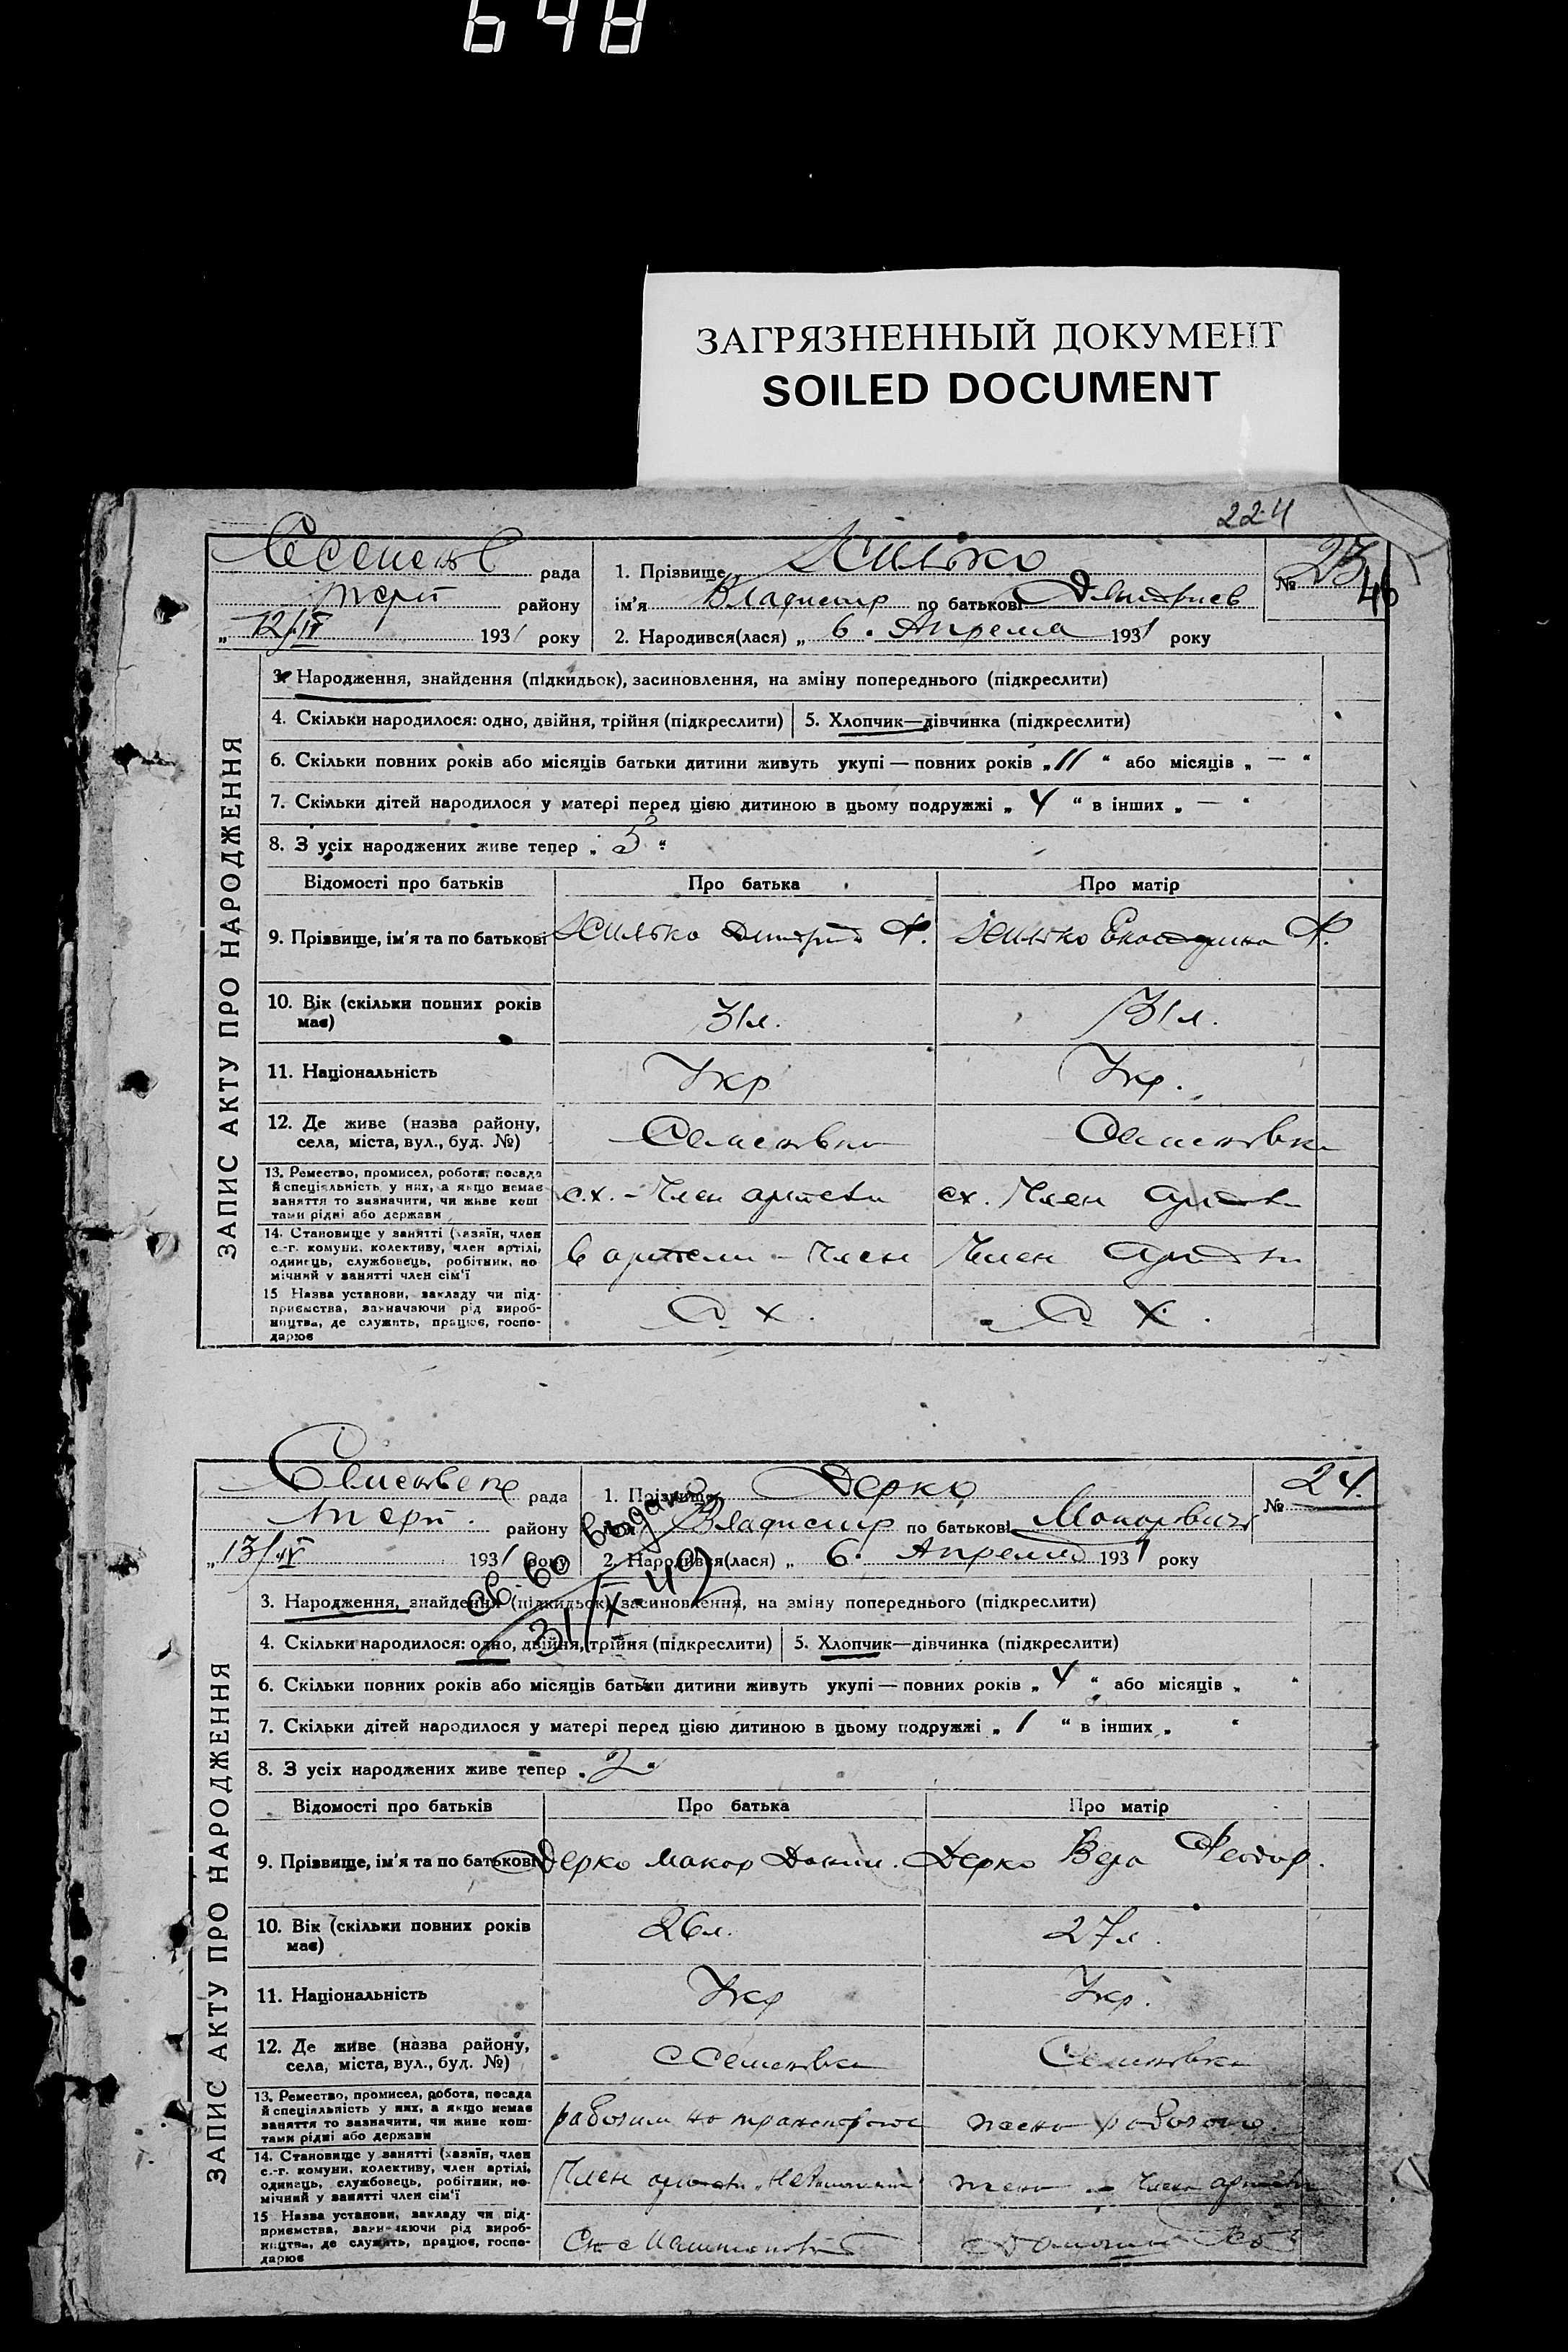 648
ЗАГРЯЗНЕННЫЙ ДОКУМЕНТ
SOILED DOCUMENT
224
рада
району
„12/IV 1931 року
1. Прізвище
ім'я Владимир по батькові Дмитриев
2. Народився(лася) „ 6. Апреля 1931 року
№ 23
46
ЗАПИС АКТУ ПРО НАРОДЖЕННЯ
3. Народження, знайдення (підкидьок), засиновлення, на зміну попереднього (підкреслити)
4. Скільки народилося: одно, двійня, трійня (підкреслити) 5. Хлопчик—дівчинка (підкреслити)
6. Скільки повних років або місяців батьки дитини живуть укупі — повних років „ 11 “ або місяців „ — “
7. Скільки дітей народилося у матері перед цією дитиною в цьому подружжі „ 4 “ в інших „ — “
8. З усіх народжених живе тепер „ 5 “
Відомості про батьків Про батька Про матір
9. Прізвище, ім'я та по батькові Дмитрий Ф. Екатерина Ф.
10. Вік (скільки повних років має) 31 л. 31 л.
11. Національність Укр Укр.
12. Де живе (назва району, села, міста, вул., буд. №) Семеновка Семеновка
13. Ремество, промисел, робота, посада й спеціяльність у них, а якщо немає заняття то зазначити, чи живе кош тами рідні або держави с.х. – Член артели сх. Член артели
14. Становище у занятті (хазяїн, член с.-г. комуни, колективу, член артілі, одинець, службовець, робітник, помічний у занятті член сім'ї в артели – Член Член артели
15 Назва установи, закладу чи підприємства, зазначаючи рід виробництва, де служить, працює, господарює С. х. С. х.
рада
району
„13/IV 1931 року
1. Прізвище Дерко
ім'я Владимир по батькові Макарович
2. Народився(лася) „ 6. Апреля 1931 року
№ 24.
св-во выдано
31/X-49
ЗАПИС АКТУ ПРО НАРОДЖЕННЯ
3. Народження, знайдення (підкидьок), засиновлення, на зміну попереднього (підкреслити)
4. Скільки народилося: одно, двійня, трійня (підкреслити) 5. Хлопчик—дівчинка (підкреслити)
6. Скільки повних років або місяців батьки дитини живуть укупі — повних років „ 4 “ або місяців „ “
7. Скільки дітей народилося у матері перед цією дитиною в цьому подружжі „ 1 “ в інших „ “
8. З усіх народжених живе тепер „ 2 “
Відомості про батьків Про батька Про матір
9. Прізвище, ім'я та по батькові Дерко Макар Дерко Вера Феодор.
10. Вік (скільки повних років має) 26 л. 27 л.
11. Національність Укр Укр.
12. Де живе (назва району, села, міста, вул., буд. №) с Семеновка Семеновка
13. Ремество, промисел, робота, посада й спеціяльність у них, а якщо немає заняття то зазначити, чи живе коштами рідні або держави рабочим на транспорте жена рабочого.
14. Становище у занятті (хазяїн, член с.-г. комуни, колективу, член артілі, одинець, службовець, робітник, помічний у занятті член сім'ї Член артели жена – член артели
15 Назва установи, закладу чи підприємства, зазначаючи рід виробництва, де служить, працює, господарює